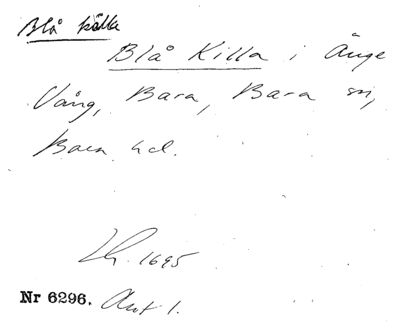 Blå källa
Blå Killa i Änge
Vång, Bara, Bara sn,
Bara hd.
Lh. 1695
Nr 6296. Akt 1.